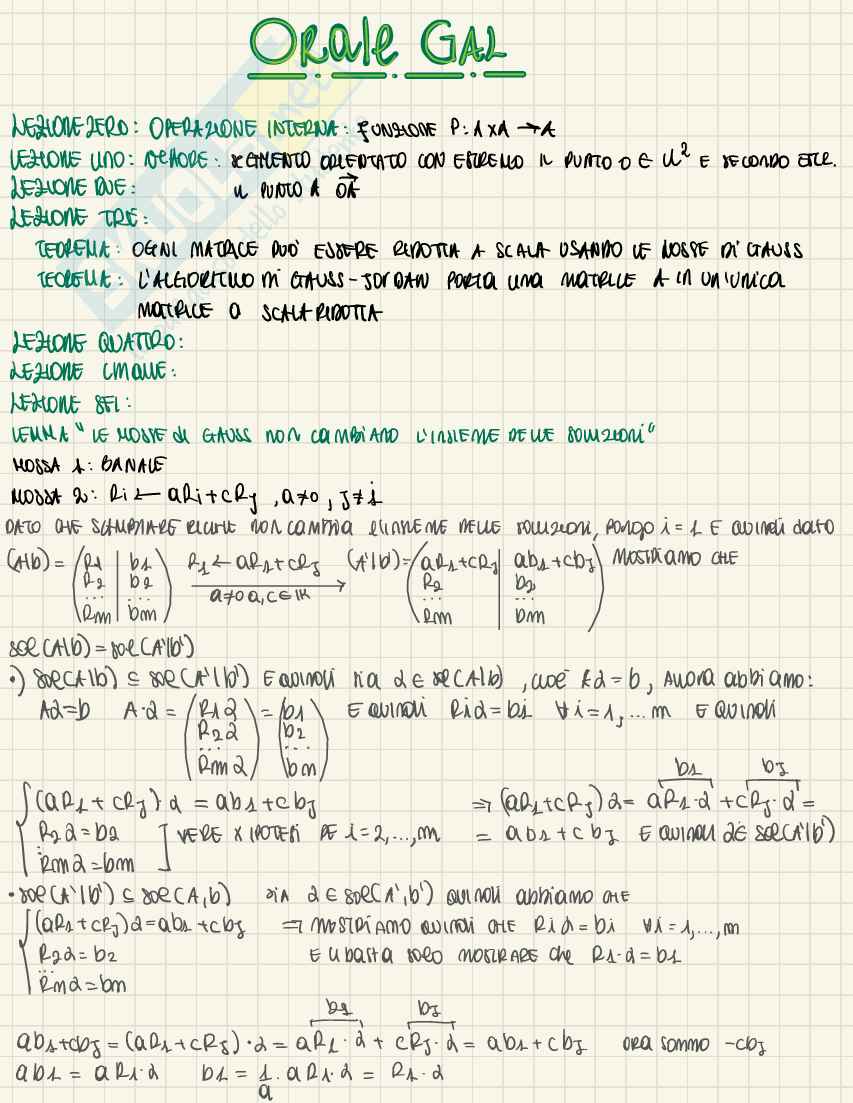 ORALE GAL
LEZIONE ZERO: OPERAZIONE INTERNA: FUNZIONE P: A×A → A
LEZIONE UNO: VETTORE: SEGMENTO ORIENTATO CON ESTREMO IL PUNTO O ∈ U² E SECONDO ESTR.
LEZIONE DUE: IL PUNTO A OA
LEZIONE TRE:
TEOREMA: OGNI MATRICE PUÒ ESSERE RIDOTTA A SCALA USANDO LE MOSSE DI GAUSS
TEOREMA: L'ALGORITMO DI GAUSS-JORDAN PORTA UNA MATRICE A IN UN'UNICA
MATRICE A SCALA RIDOTTA
LEZIONE QUATTRO:
LEZIONE CINQUE:
LEZIONE SEI:
LEMMA "LE MOSSE DI GAUSS NON CAMBIANO L'INSIEME DELLE SOLUZIONI"
MOSSA 1: BANALE
MOSSA 2: Ri ← aRi + cRj, a≠0, j≠i
DATO CHE SCAMBIARE RIGHE NON CAMBIA L'INSIEME DELLE SOLUZIONI, PONGO i = 1 E QUINDI DATO
(A|b) = (R1 | b1 R1 ← aR1 + cRj (A'|b') = (aR1 + cRj | ab1 + cbj) MOSTRIAMO CHE
R2 | b2 a≠0 a, c ∈ IK R2 | b2
... | ... ... | ...
Rm | bm) Rm | bm)
sol(A|b) = sol(A'|b')
•) sol(A|b) ⊆ sol(A'|b') E QUINDI SIA α ∈ sol(A|b), CIOÈ Aα = b, ALLORA abbiamo:
Aα = b A·α = (R1α = (b1 E QUINDI Riα = bi ∀i = 1, ... m E QUINDI
R2α b2
... ...
Rmα) bm)
b1 bj
{(aR1 + cRj)·α = ab1 + cbj ⇒ (aR1 + cRj)α = aR1·α + cRj·α =
R2α = b2 ] VERE X IPOTESI PE i = 2, ..., m = ab1 + cbj E QUINDI α ∈ sol(A'|b')
:
Rmα = bm
• sol(A'|b') ⊆ sol(A,b) SIA α ∈ sol(A',b') QUINDI abbiamo CHE
{(aR1 + cRj)α = ab1 + cbj ⇒ MOSTRIAMO QUINDI CHE Riα = bi ∀i = 1, ..., m
R2α = b2 E CI BASTA SOLO MOSTRARE che R1·α = b1
...
Rmα = bm
b1 bj
ab1 + cbj = (aR1 + cRj)·α = aR1·α + cRj·α = ab1 + cbj ORA SOMMO -cbj
ab1 = aR1·α b1 = 1/a · aR1·α = R1·α